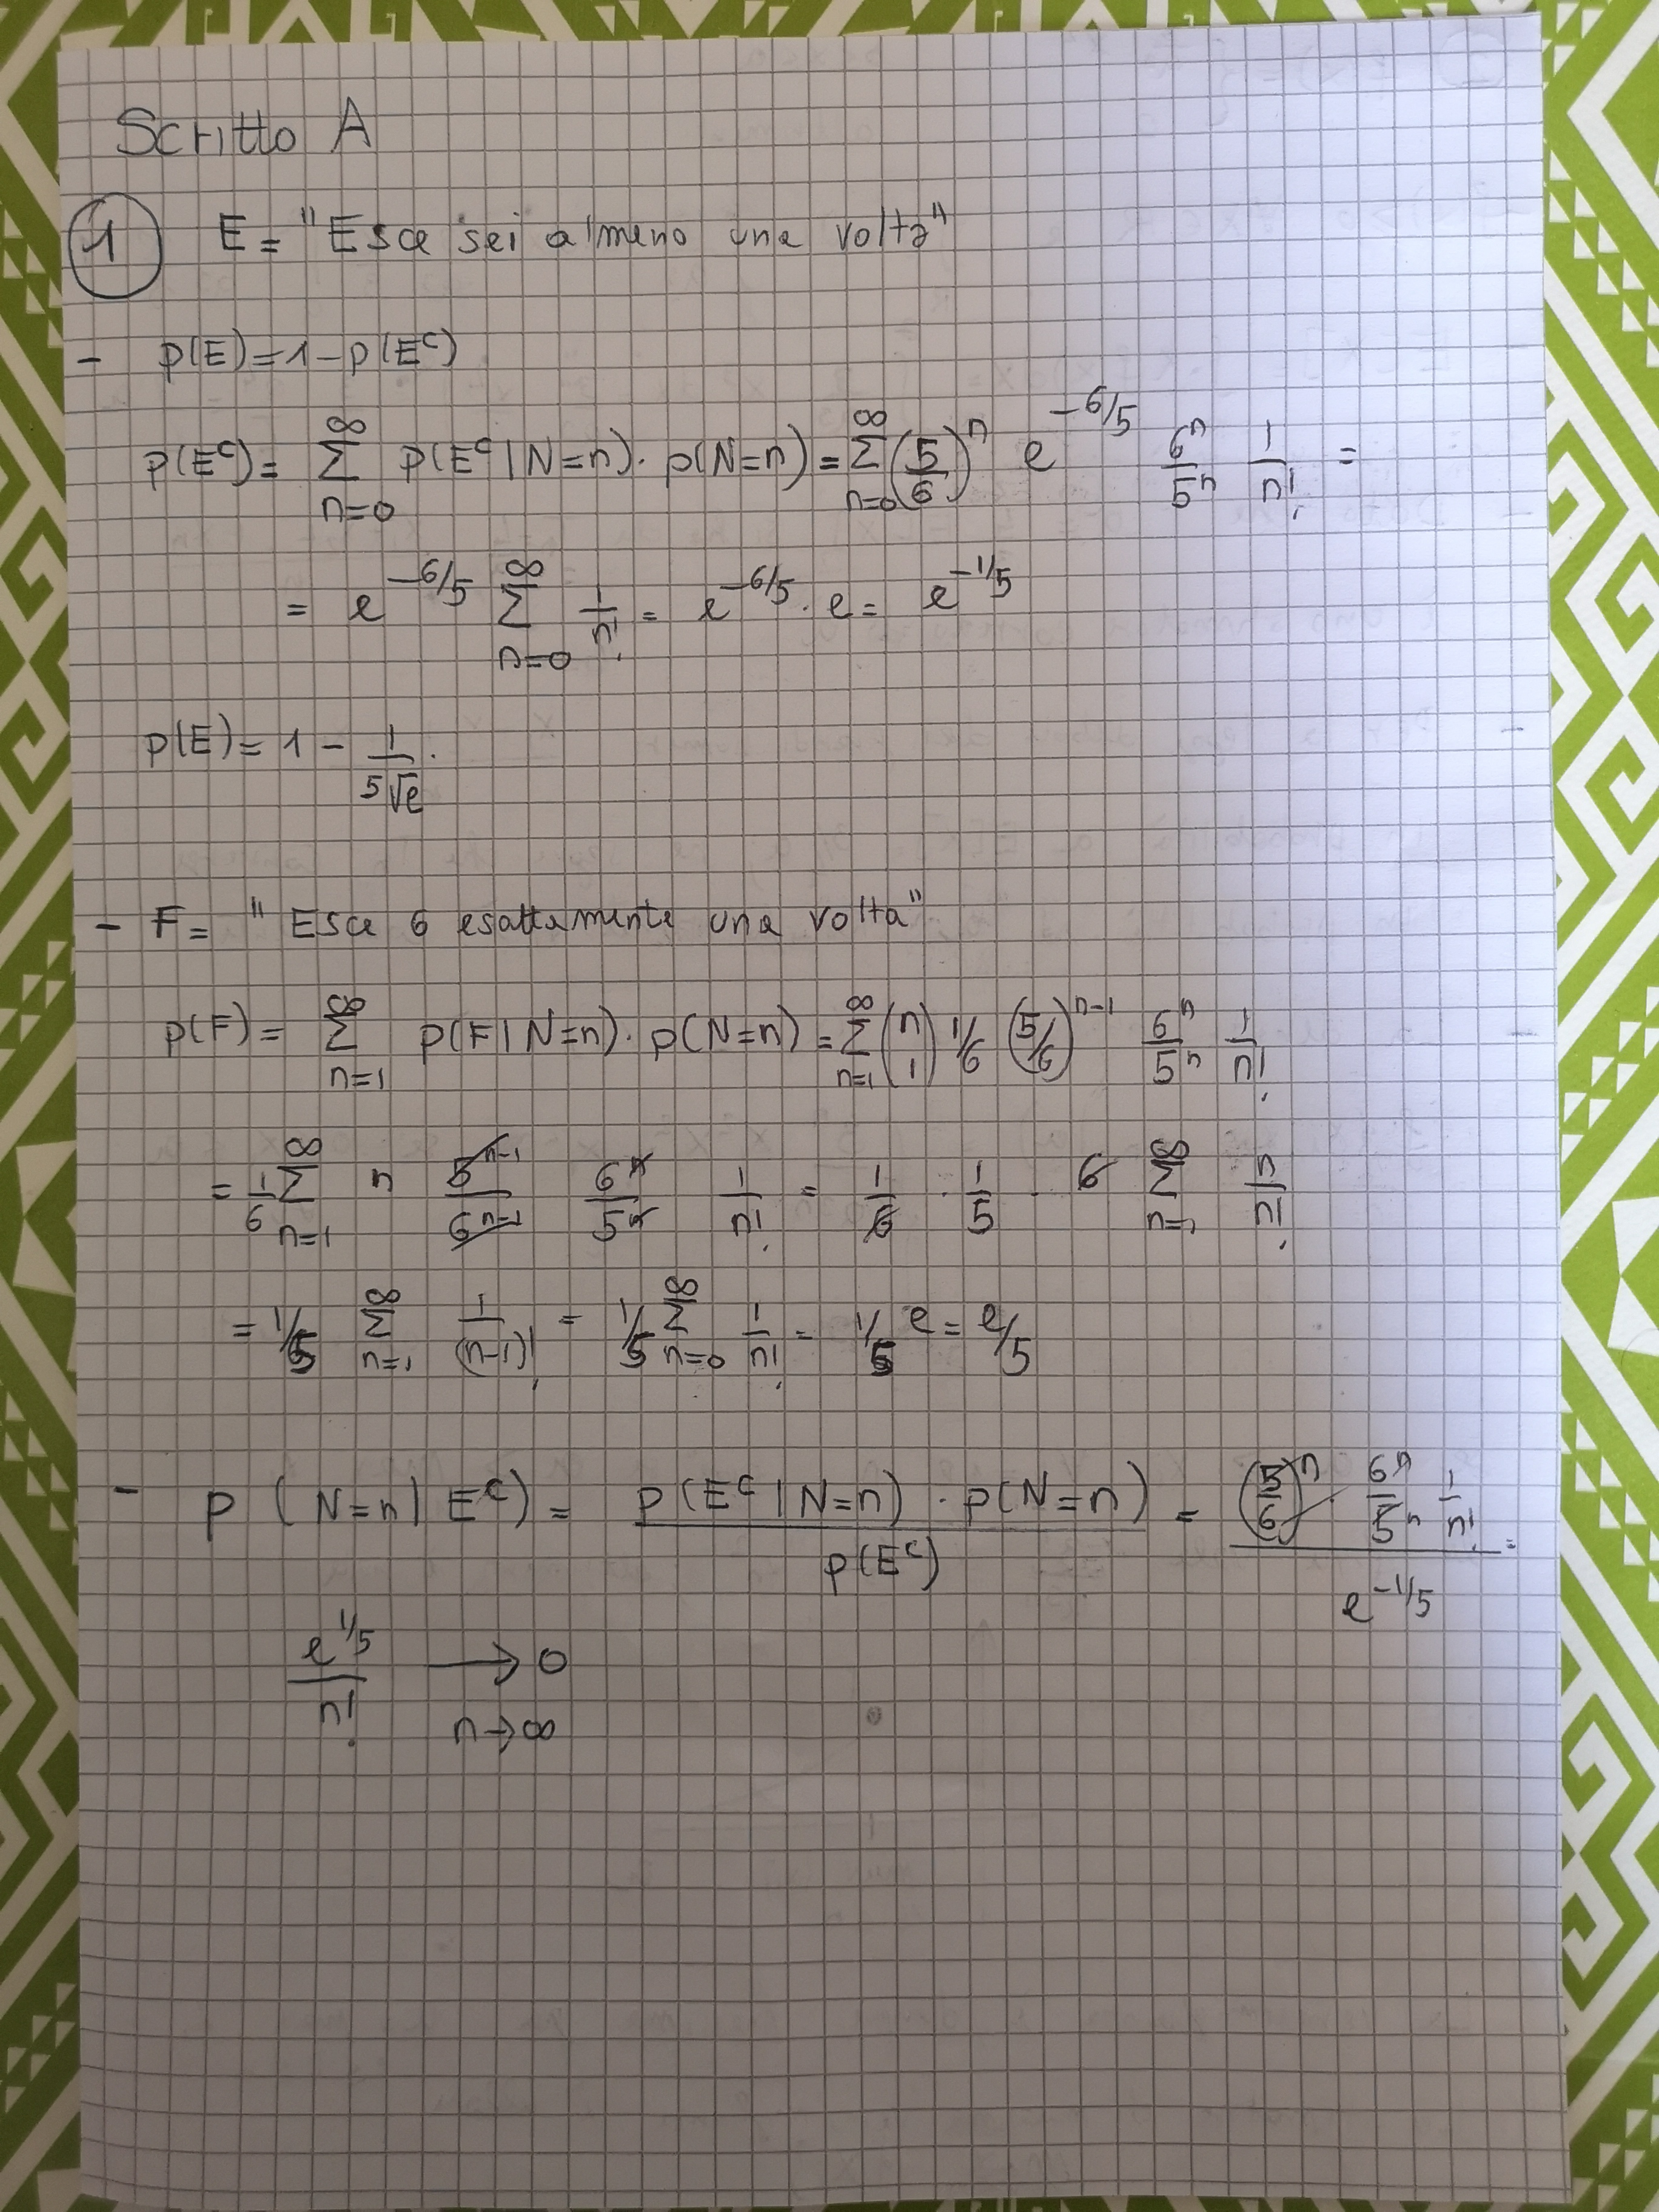 Scritto A
1 E = "Esce sei almeno una volta"
- p(E)=1-p(E^c)
p(E^c) = ∑_{n=0}^{∞} p(E^c | N=n) · p(N=n) = ∑_{n=0}^{∞} (5/6)^n e^{-6/5} 6^n/5^n 1/n! =
= e^{-6/5} ∑_{n=0}^{∞} 1/n! = e^{-6/5} · e = e^{-1/5}
p(E) = 1 - 1/5√e.
- F = "Esce 6 esattamente una volta"
p(F) = ∑_{n=1}^{∞} p(F | N=n) · p(N=n) = ∑_{n=1}^{∞} (n 1) 1/6 (5/6)^{n-1} 6^n/5^n 1/n!
= 1/6 ∑_{n=1}^{∞} n 5^{n-1}/6^{n-1} 6^n/5^n 1/n! = 1/6 · 1/5 · 6 ∑_{n=1}^{∞} n/n!
= 1/5 ∑_{n=1}^{∞} 1/(n-1)! = 1/5 ∑_{n=0}^{∞} 1/n! = 1/5 e = e/5
- p (N=n | E^c) = p(E^c | N=n) · p(N=n) / p(E^c) = (5/6)^n · 6^n/5^n 1/n! / e^{-1/5} =
e^{1/5}/n! ⟶ 0
n→∞